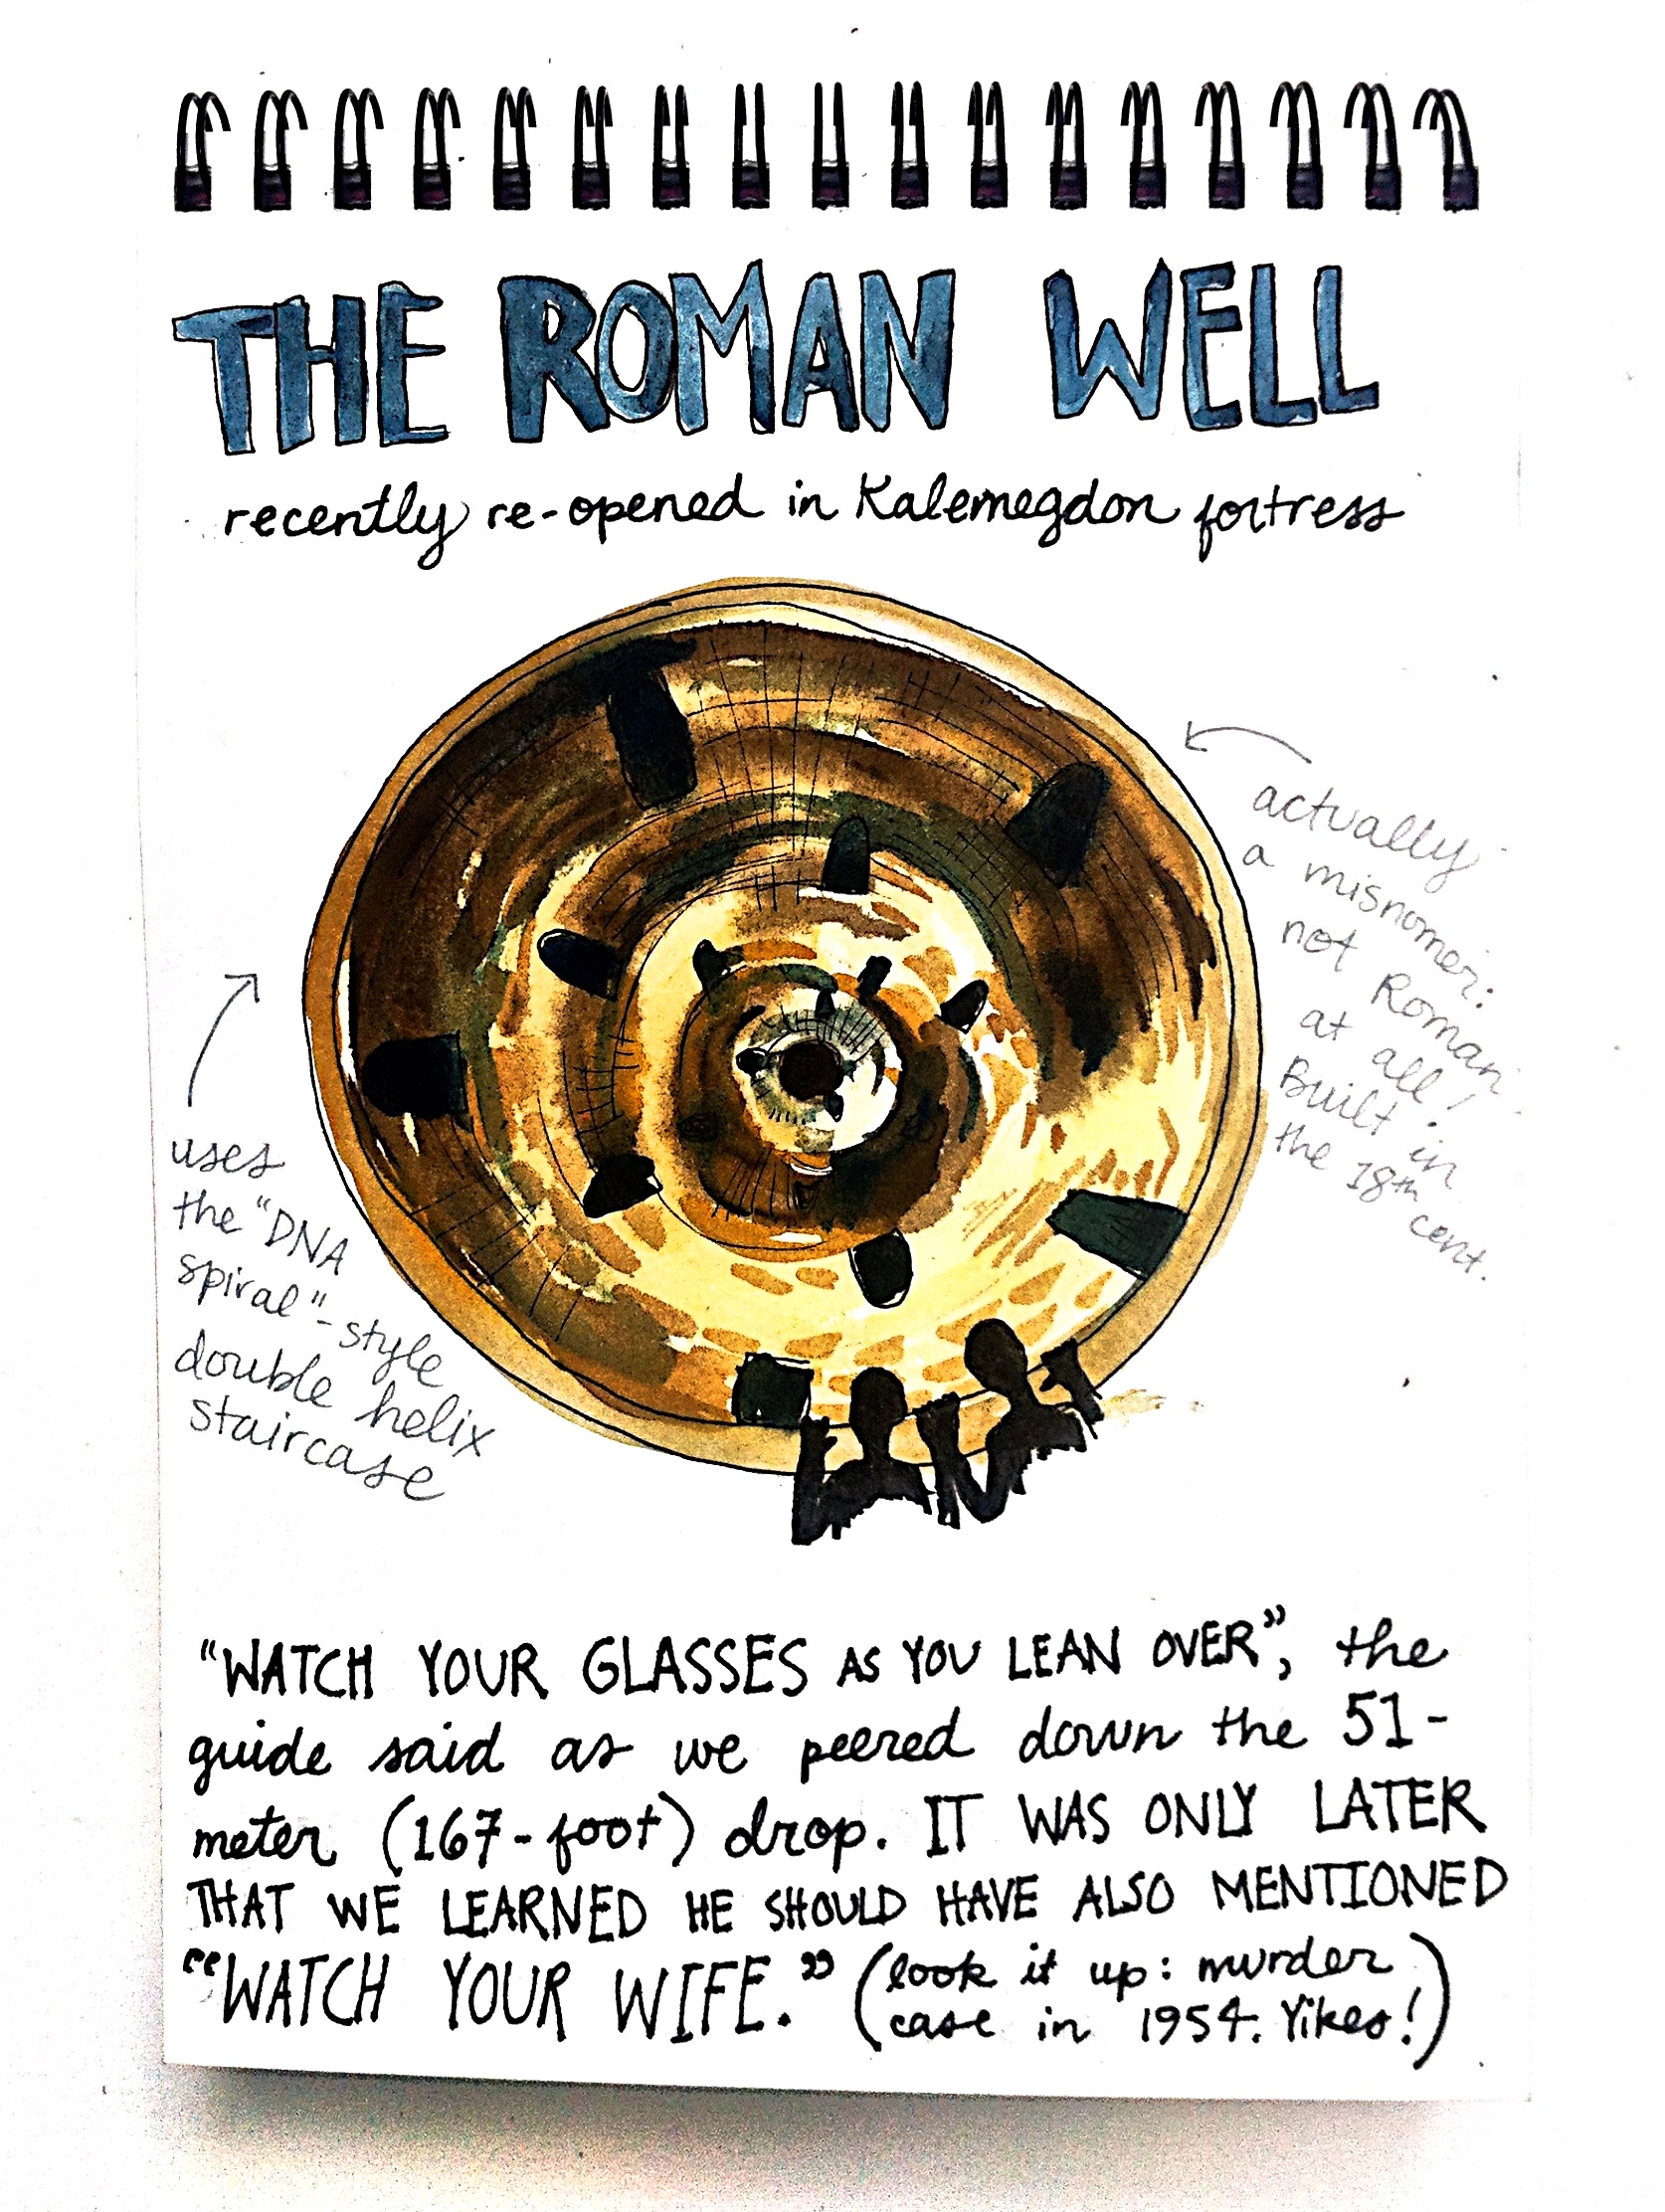 THE ROMAN WELL
recently re-opened in Kalemegdon fortress
actually
a misnomer:
not Roman
at all!
Built in
the 18th cent.
uses
the "DNA
spiral"-style
double helix
staircase
"WATCH YOUR GLASSES AS YOU LEAN OVER", the
guide said as we peered down the 51-
meter (167-foot) drop. IT WAS ONLY LATER
THAT WE LEARNED HE SHOULD HAVE ALSO MENTIONED
"WATCH YOUR WIFE." (look it up: murder
case in 1954. Yikes!)